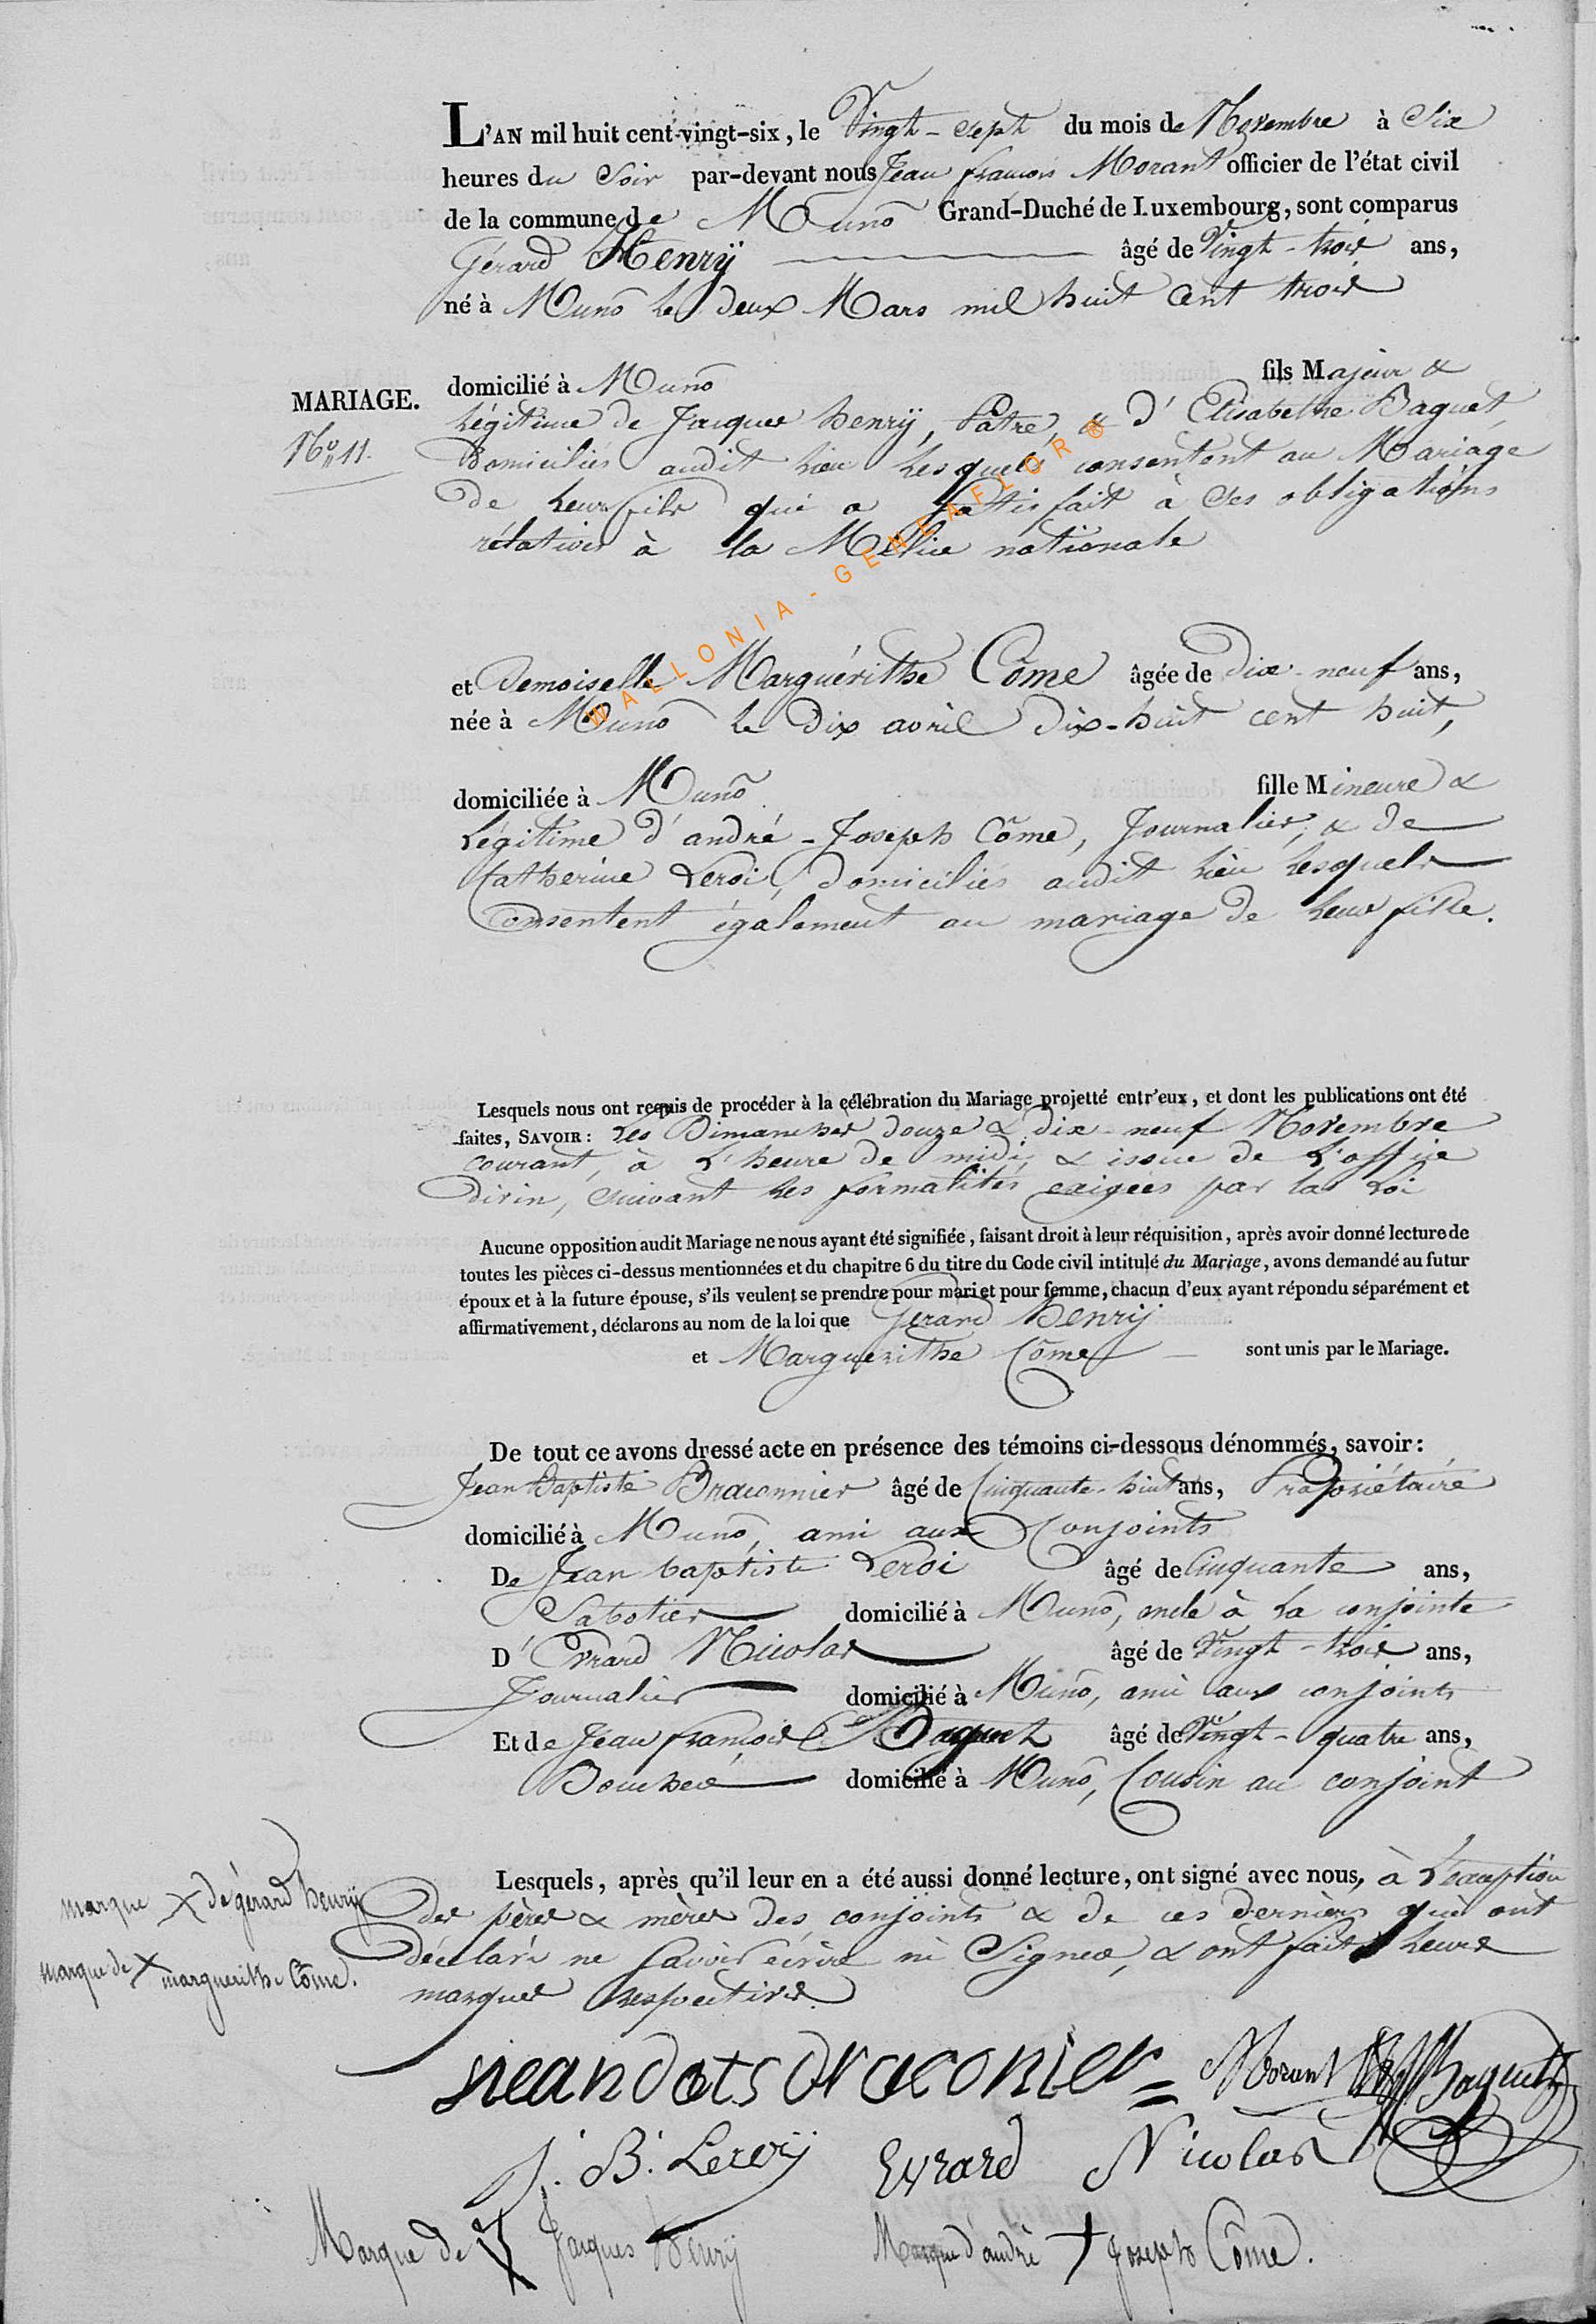 L'AN mil huit cent-vingt-six, le Vingt-sept du mois de Novembre à Six
heures du Soir par-devant nous Jean françois Morant officier de l'état civil
de la commune de Muno Grand-Duché de Luxembourg, sont comparus
Gérard Henrÿ âgé de Vingt-trois ans,
né à Muno le deux Mars mil huit cent trois
domicilié à Muno fils Majeur &
MARIAGE.
Légitime de Jacques henrÿ, Pâtre, & d'Elisabethe Baguet,
No 11.
Domiciliés audit lieu lesquels consentent au Mariage
de leur fils qui a satisfait à ses obligations
rélatives à la Milice nationale
et Demoiselle Marguérithe Côme âgée de Dix-neuf ans,
née à Muno le Dix avril Dix-huit cent huit,
domiciliée à Muno fille Mineure &
Légitime d'andré-Joseph Côme, Journalier, & de
Catherine Leroi, domiciliés audit lieu lesquels
Consentent également au mariage de leur fille.
Lesquels nous ont requis de procéder à la célébration du Mariage projetté entr'eux, et dont les publications ont été
faites, SAVOIR: Les Dimanches douze & dix-neuf Novembre
courant, à L'heure de midi, & issue de L'office
divin, suivant les formalités exigées par la Loi
Aucune opposition audit Mariage ne nous ayant été signifiée, faisant droit à leur réquisition, après avoir donné lecture de
toutes les pièces ci-dessus mentionnées et du chapitre 6 du titre du Code civil intitulé du Mariage, avons demandé au futur
époux et à la future épouse, s'ils veulent se prendre pour mari et pour femme, chacun d'eux ayant répondu séparément et
affirmativement, déclarons au nom de la loi que Gerard henrÿ
et Marguerithe Côme sont unis par le Mariage.
De tout ce avons dressé acte en présence des témoins ci-dessous dénommés, savoir:
Jean Baptiste Braconnier âgé de Cinquante-huit ans, Propriétaire
domicilié à Muno, ami aux Conjoints
De Jean baptiste Leroi âgé de Cinquante ans,
Sabotier domicilié à Muno, oncle à la conjointe
D'Evrard Nicolas âgé de Vingt-trois ans,
Journalier domicilié à Muno, ami aux conjoints
Et de Jean françois Baguet âgé de Vingt-quatre ans,
Boucher domicilié à Muno, Cousin au conjoint
Lesquels, après qu'il leur en a été aussi donné lecture, ont signé avec nous, à L'exception
marque X de gérard henrÿ
des pères & mères des conjoints & de ces derniers qui ont
déclaré ne savoir écrire ni Signer, & ont fait leurs
marque de X marguerithe Côme.
marques respectives.
Morant Baguet
J. B. Leroÿ Evrard Nicolas
Marque de X Jacques henrÿ Marque d'andré + Joseph Côme.
WALLONIA - GENEAFLOR ®